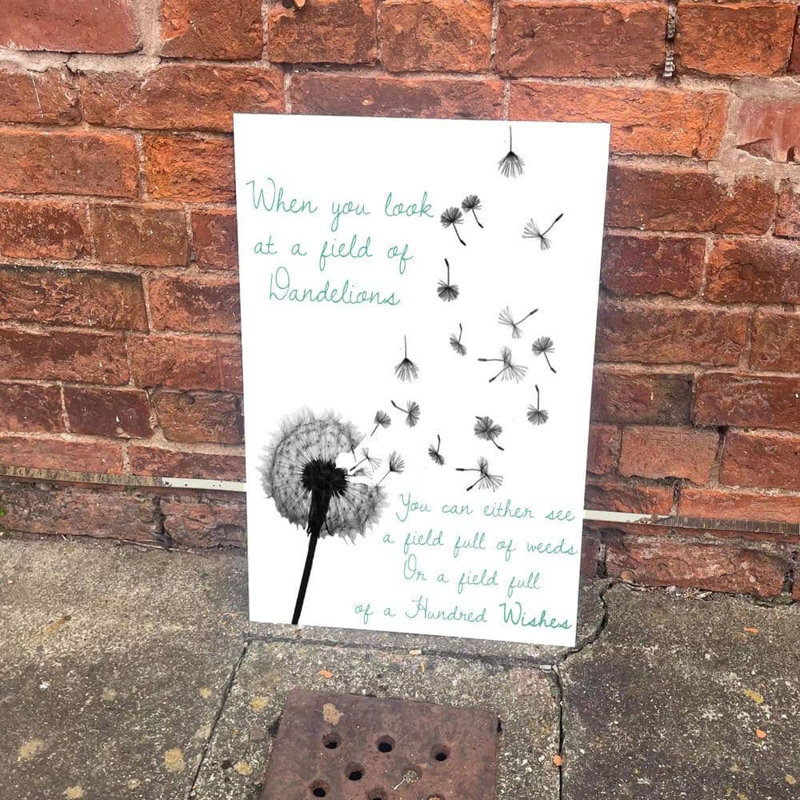 When you look
at a field of
Dandelions
You can either see
a field full of weeds
Or a field full
of a Hundred Wishes